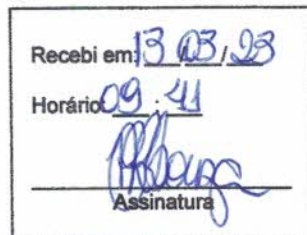 Recebi em: 13 / 03 / 23
Horário: 09 : 41
Assinatura